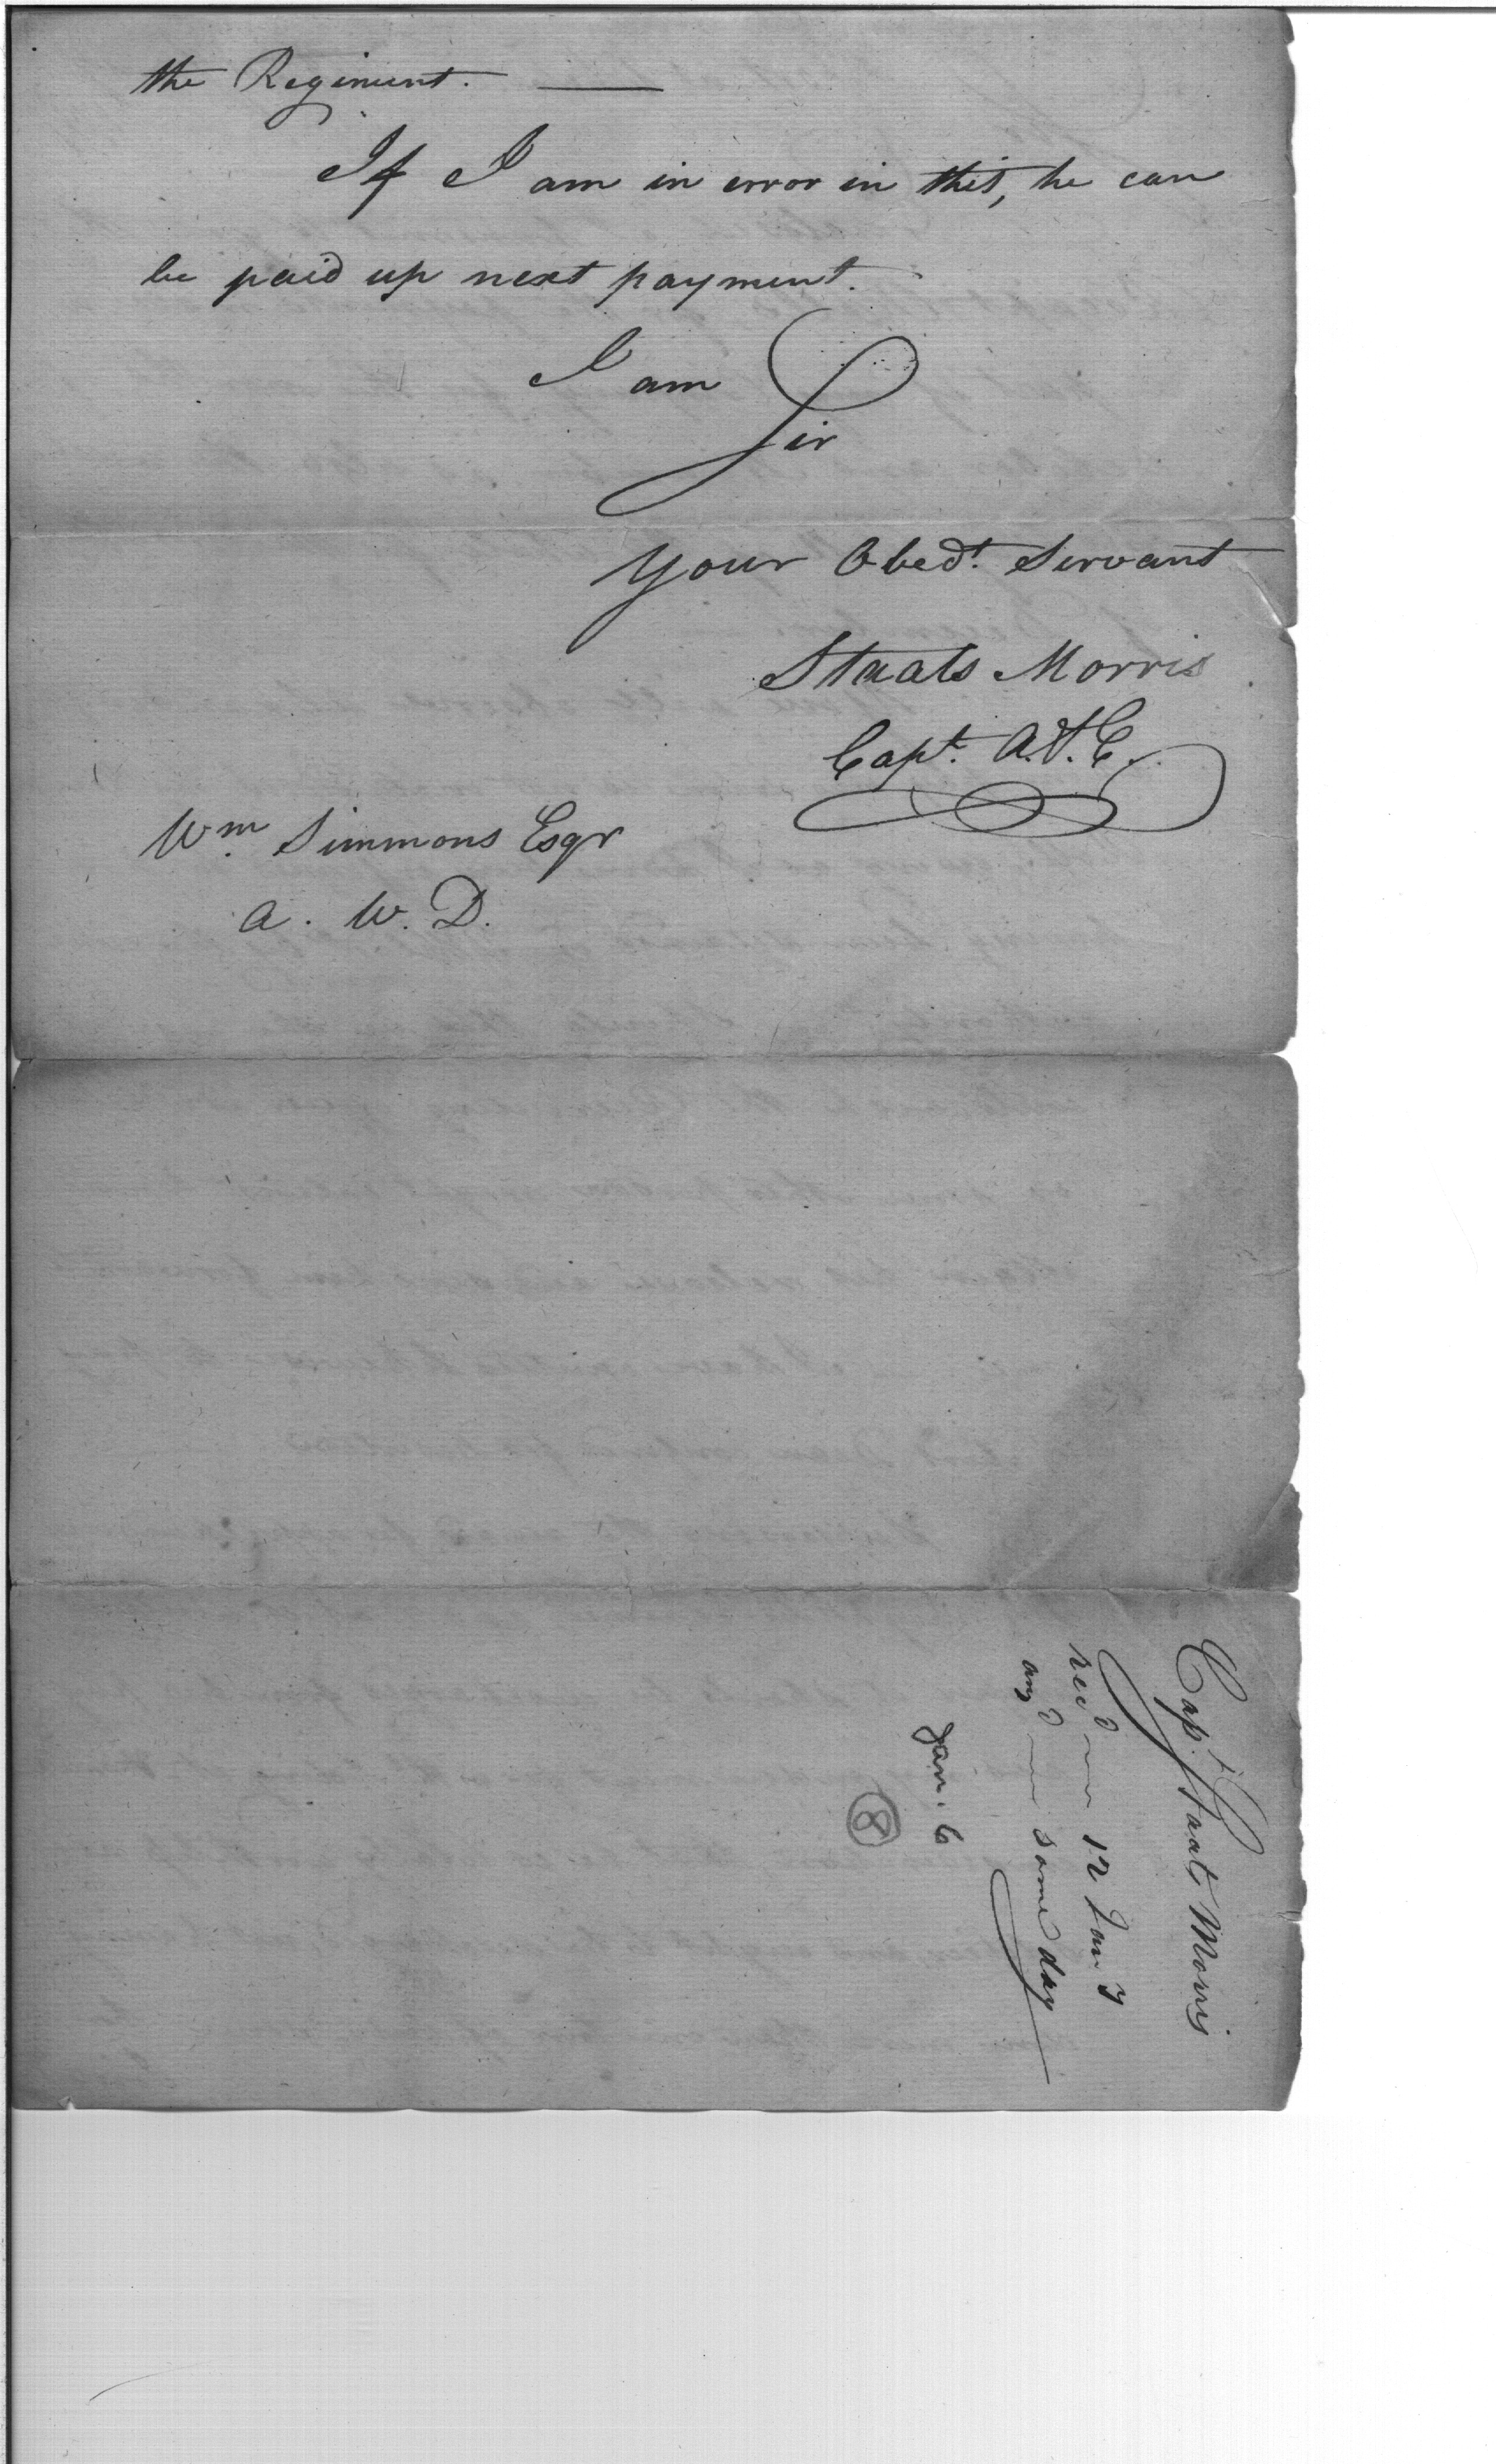 the Regiment. ——
If I am in error in this, he can
be paid up next payment.
I am
Sir
Your Obedt. Servant
Staats Morris
Capt. A. & E.
Wm. Simmons Esqr
A. W. D.
Capt. Staats Morris
recd 12 Jany
ansd same day
Jan. 6
8